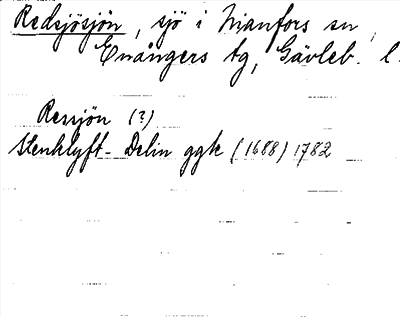 Redsjösjön, sjö i Njanfors sn,
Enångers tg, Gävleb. l.
Ressjön (?)
Stenklyft- Delin ggk (1688) 1782